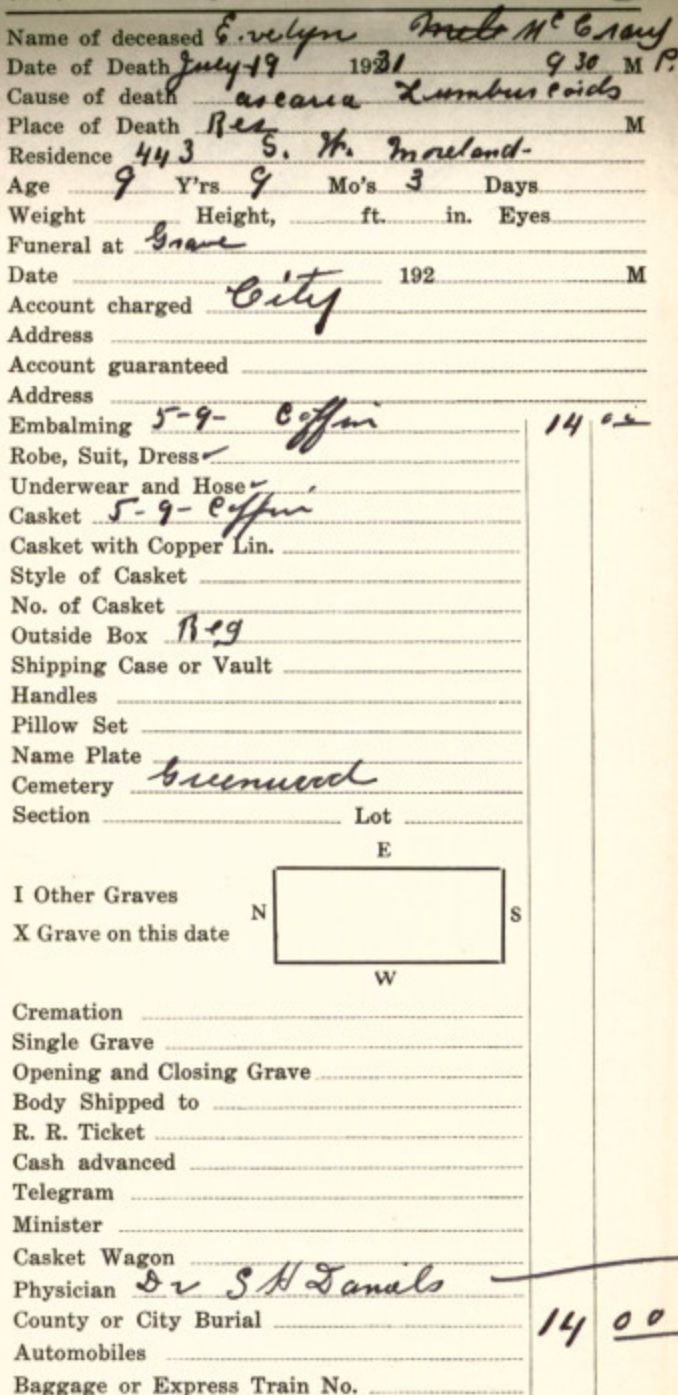 Name of deceased Evelyn Mc Crary
Date of Death July 19 1931 9 30 M P.
Cause of death ascaria Lumbuscoids
Place of Death Res M
Residence 443 S. W. Moreland-
Age 9 Y'rs 9 Mo's 3 Days
Weight Height, ft. in. Eyes
Funeral at Grave
Date 192 M
Account charged City
Address
Account guaranteed
Address
Embalming 5-9- Coffin 14 00
Robe, Suit, Dress ✓
Underwear and Hose ✓
Casket 5-9- Coffin
Casket with Copper Lin.
Style of Casket
No. of Casket
Outside Box Reg
Shipping Case or Vault
Handles
Pillow Set
Name Plate
Cemetery Greenwood
Section Lot
E
I Other Graves
N S
X Grave on this date
W
Cremation
Single Grave
Opening and Closing Grave
Body Shipped to
R. R. Ticket
Cash advanced
Telegram
Minister
Casket Wagon
Physician Dr S H Daniels
County or City Burial 14 00
Automobiles
Baggage or Express Train No.